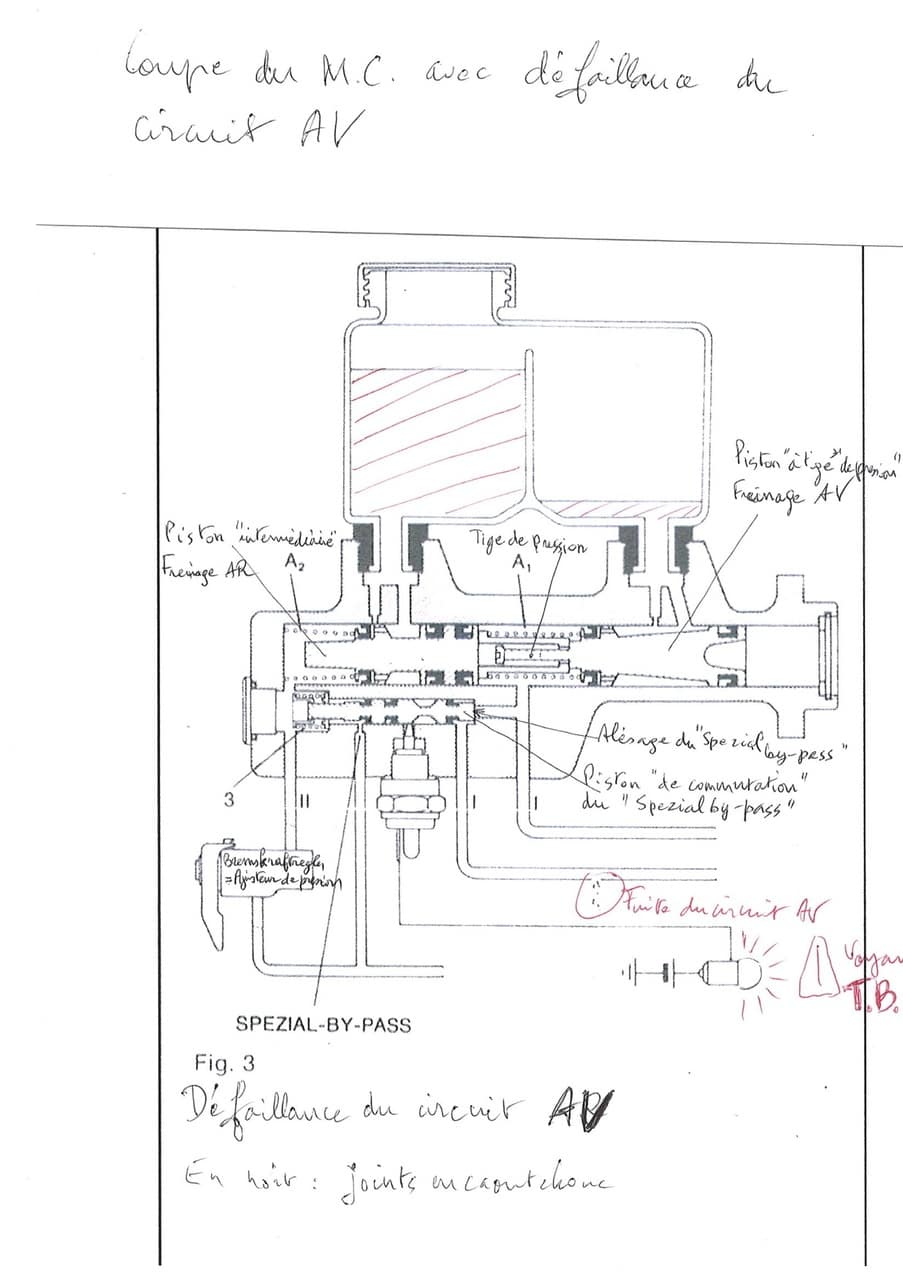 Coupe du M.C. avec défaillance du
circuit AV
Piston "à tige" de pression"
Freinage AV
Piston "intermédiaire"
Freinage AR
A2
Tige de pression
A1
Alésage du "Spezial by-pass"
Piston "de commutation"
du "Spezial by-pass"
3
II
I
I
Bremskraftregler
= Ajusteur de pression
Fuite du circuit AV
!
Voyan
T.B.
SPEZIAL-BY-PASS
Fig. 3
Défaillance du circuit AV
En noir : joints en caoutchouc